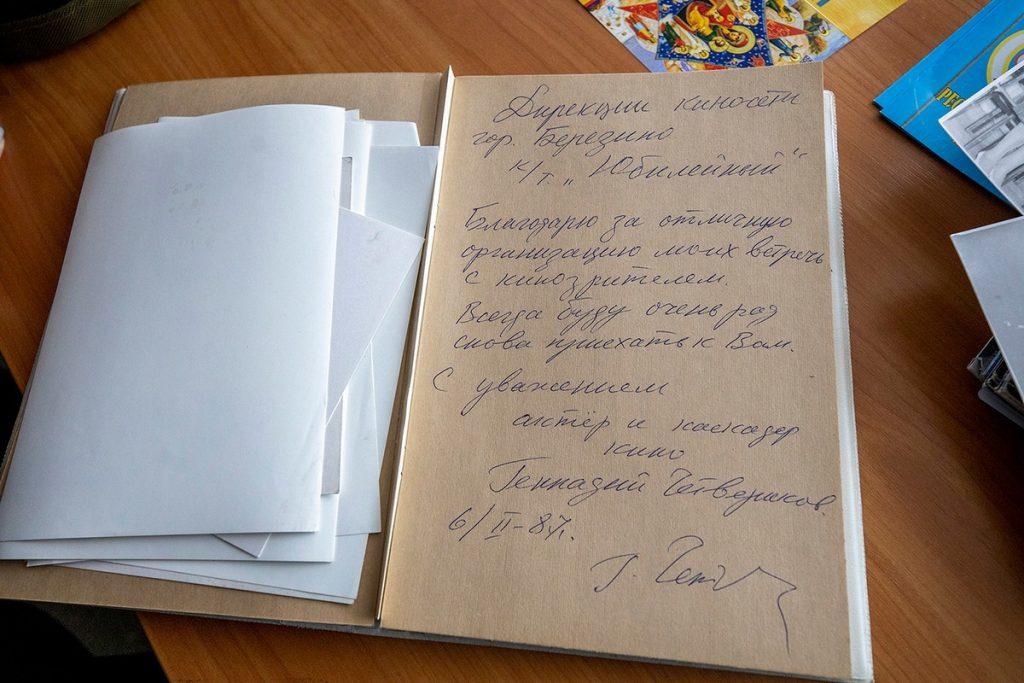 Дирекции киносети
гор. Березино
к/т. „Юбилейный“
Благодарю за отличную
организацию моих встреч
с кинозрителем.
Всегда буду очень рад
снова приехать к Вам.
С уважением
актёр и каскадер
кино
Геннадий Четвериков.
6/II-87г.
Г. Чет
РЕС